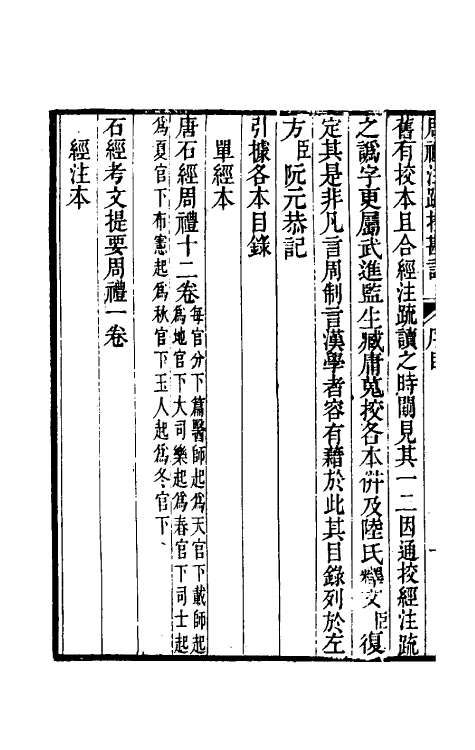 舊有挍本且合經注疏讀之時闚見其一二因通挍經注疏
之譌字更屬武進監生臧庸蒐挍各本併及陸氏釋文臣復
定其是非凡言周制言漢學者容有藉於此其目錄列於左
方臣阮元恭記
引據各本目錄
單經本
唐石經周禮十二卷每官分下篇醫師起爲天官下載師起
爲地官下大司樂起爲春官下司士起
爲夏官下布憲起爲秋官下玉人起爲冬官下、
石經考文提要周禮一卷
經注本